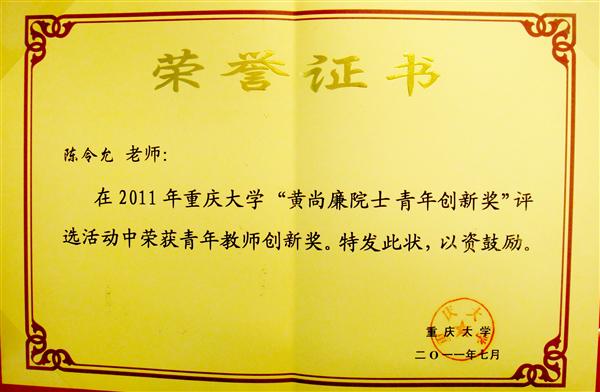 荣誉证书
陈令允 老师：
在2011年重庆大学“黄尚廉院士青年创新奖”评
选活动中荣获青年教师创新奖。特发此状，以资鼓励。
重庆大学
重庆大学
二〇一一年七月